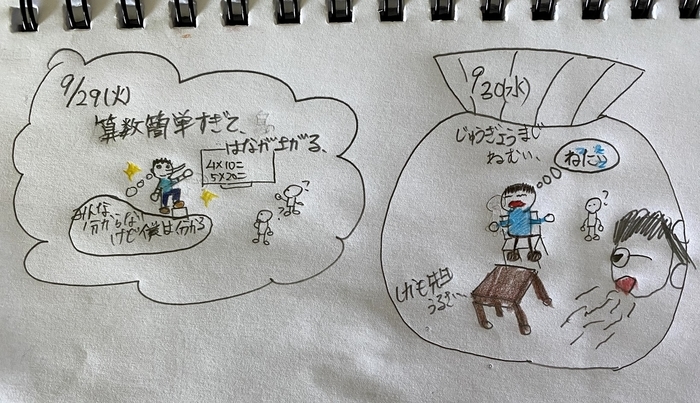 9/29(火)
算数簡単すぎて、
はなが上がる、
4×10=
5×20=
みんな
分からない
けど僕は分かる
?
9/30(水)
じゅうぎょうまじ
ねむい、
ねたい
?
しかも先生
うるさい、